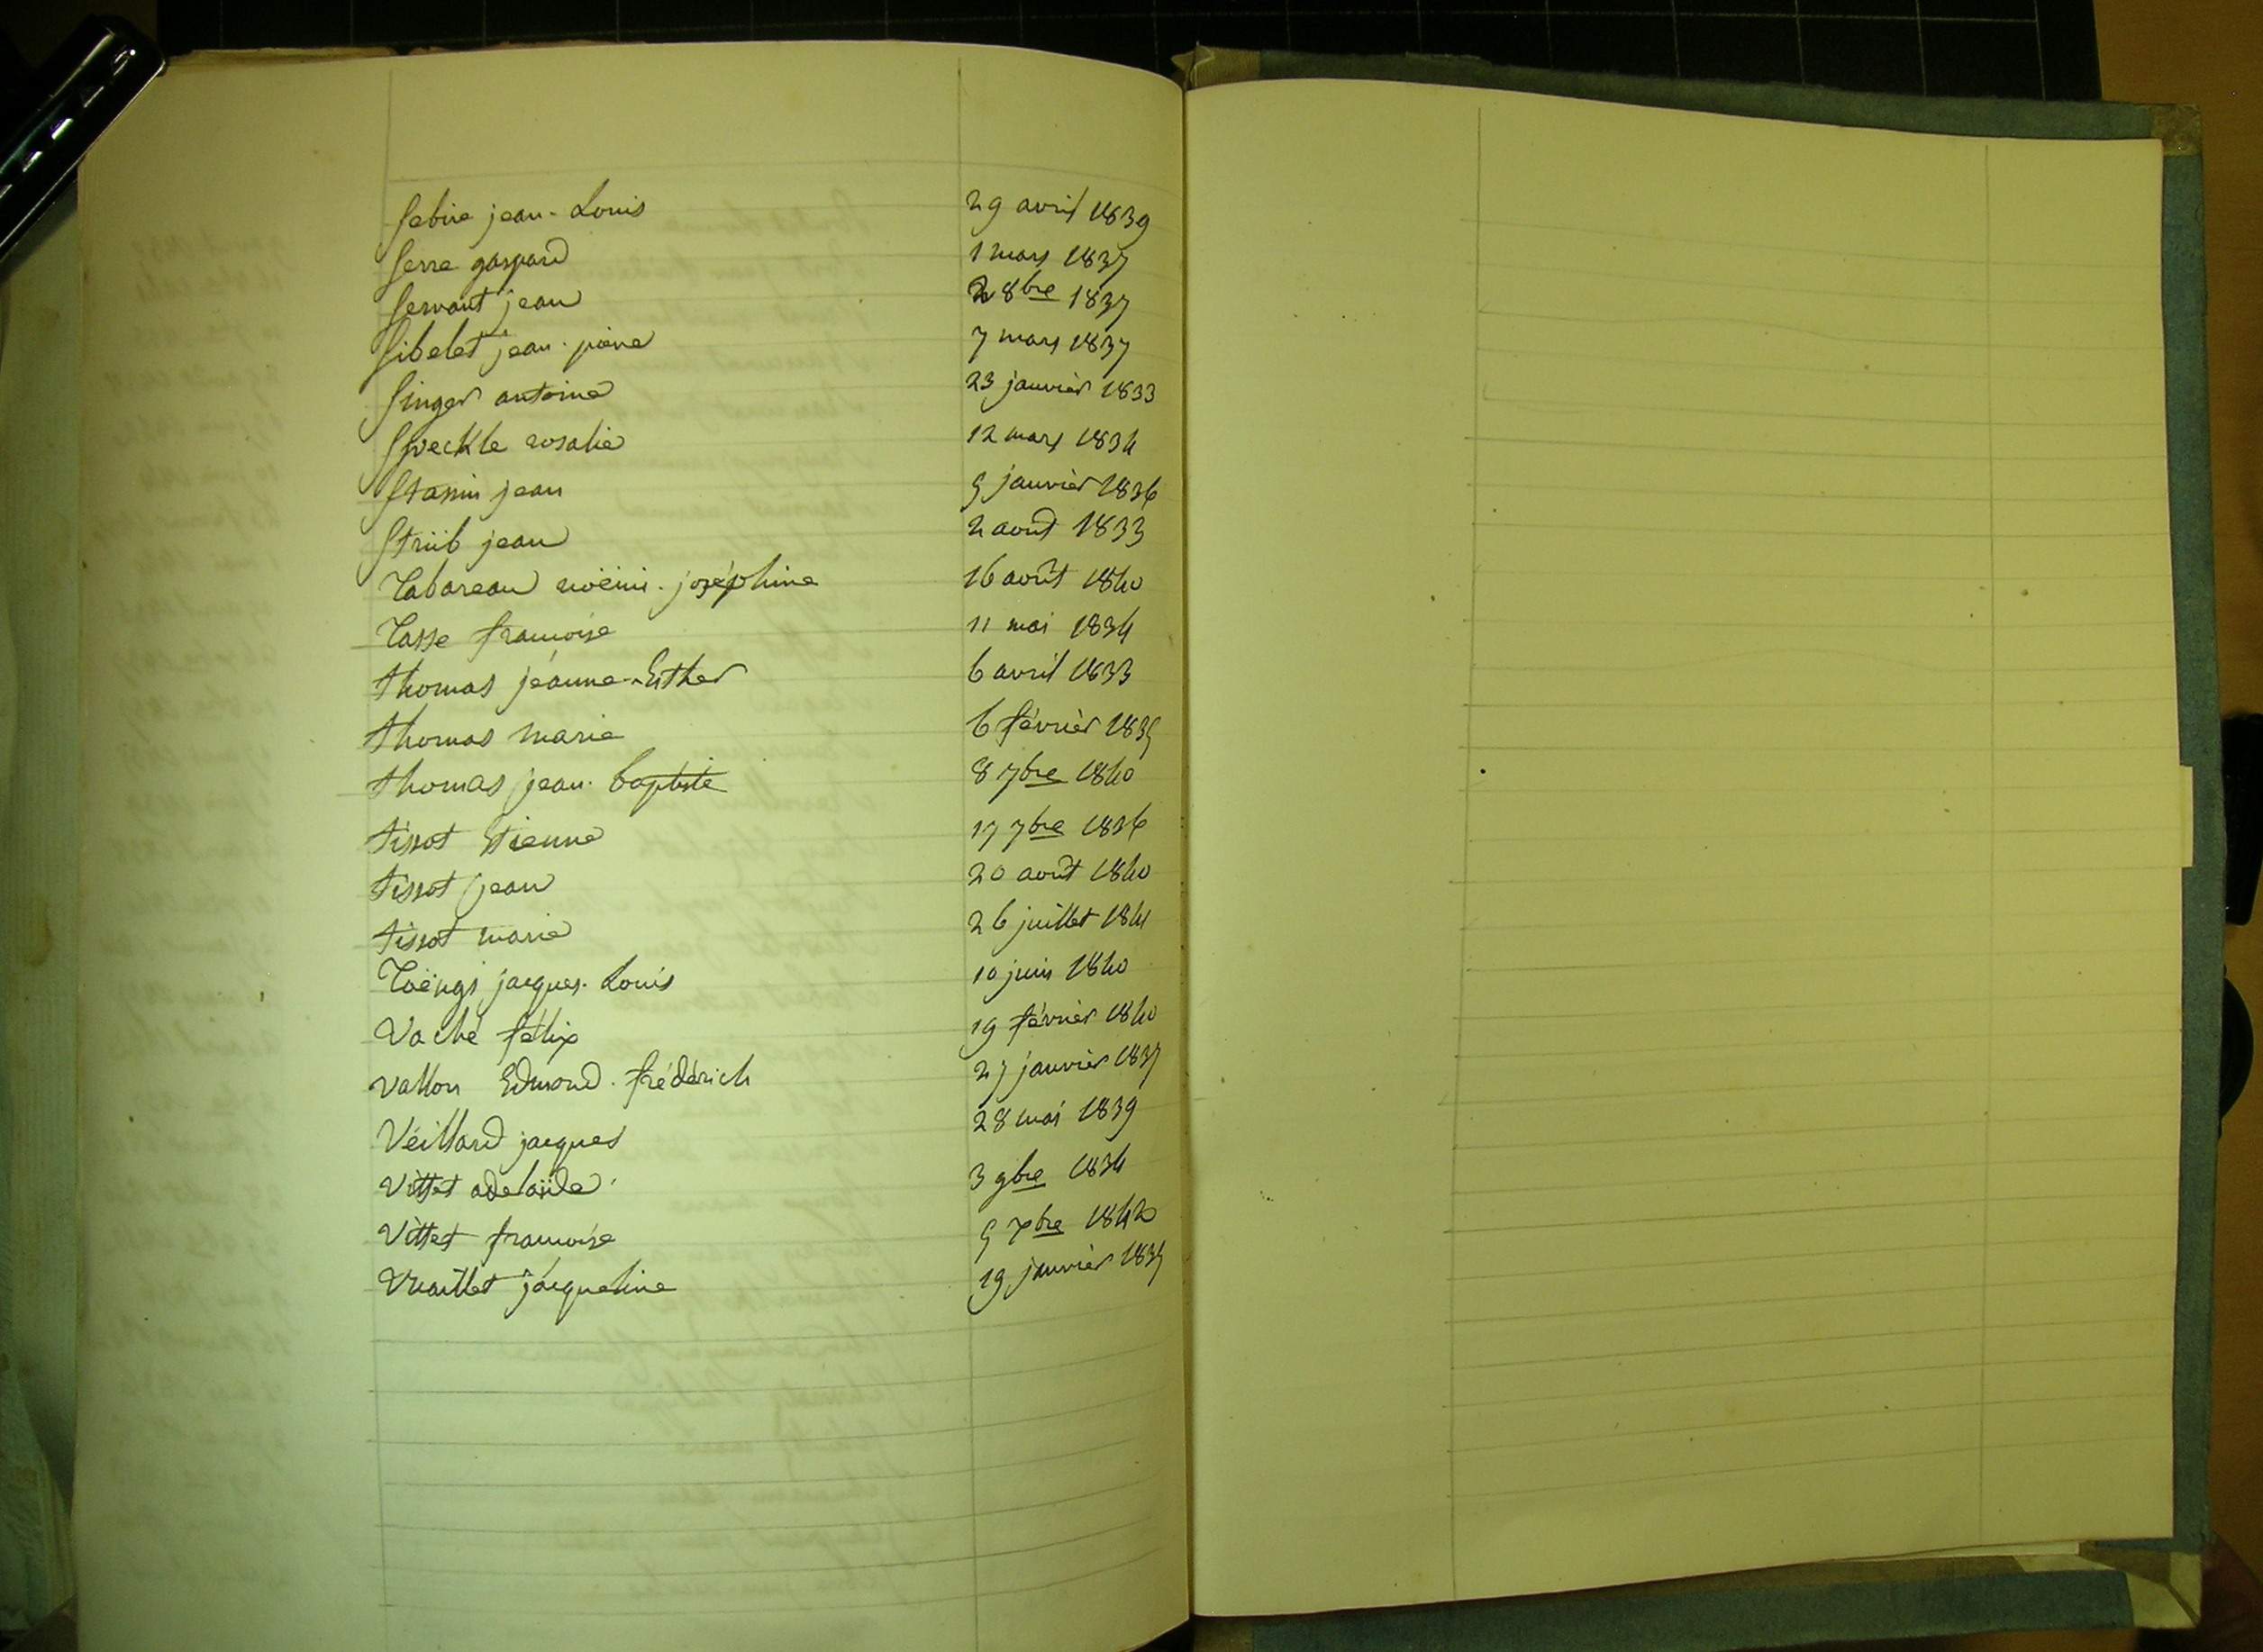 Sebire jean-Louis 29 avril 1839
Serre gaspard 1 mars 1837
Servant jean 2 8bre 1837
Sibelet jean-pierre 7 mars 1837
Singer antoine 23 janvier 1833
Speckle rosalie 12 mars 1834
Stamm jean 5 janvier 1836
Strüb jean 2 août 1833
Tabareau noëmi-joséphine 16 août 1840
Tasse françoise 11 mai 1834
thomas jeanne-Esther 6 avril 1833
thomas marie 6 février 1835
thomas jean-baptiste 8 7bre 1840
tissot Etienne 17 7bre 1836
tissot jean 20 août 1840
tissot marie 26 juillet 1841
jacques-Louis 10 juin 1840
Vaché félix 19 février 1840
Vallon Edmond-frédérich 27 janvier 1837
Veillard jacques 28 mai 1839
Vittet adelaïde 3 9bre 1834
Vittet françoise 5 7bre 1842
Vuaillet jacqueline 19 janvier 1835